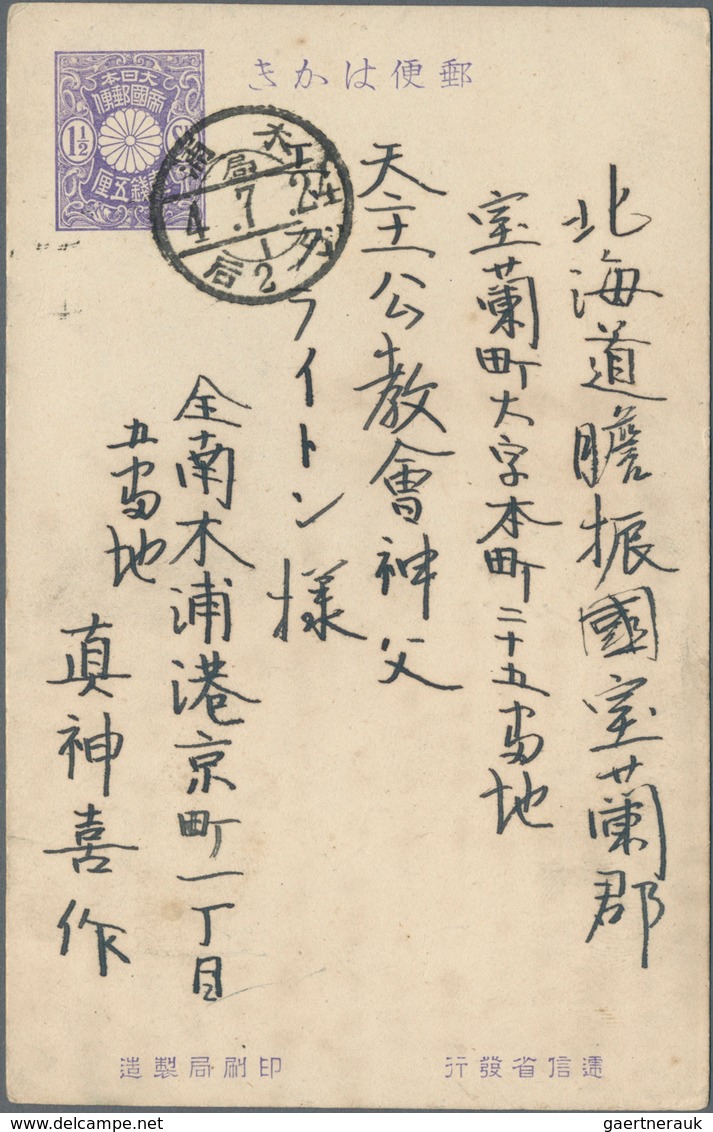 郵便はかき
大日本
帝國郵便
1½
壹錢五厘
局
4.7.2
后
2
北海道膽振國室蘭郡
室蘭町大字本町二十五番地
天主公教會神父
ライトン様
全南木浦港京町一丁目
五番地
真神喜作
遞信省發行
印刷局製造
gaertnerauk